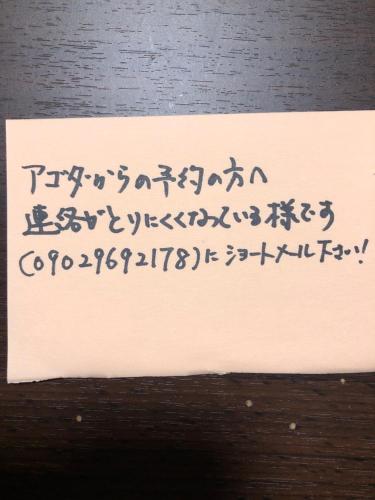 アゴダからの予約の方へ
連絡がとりにくくなっている様です
(09029692178)にショートメール下さい!